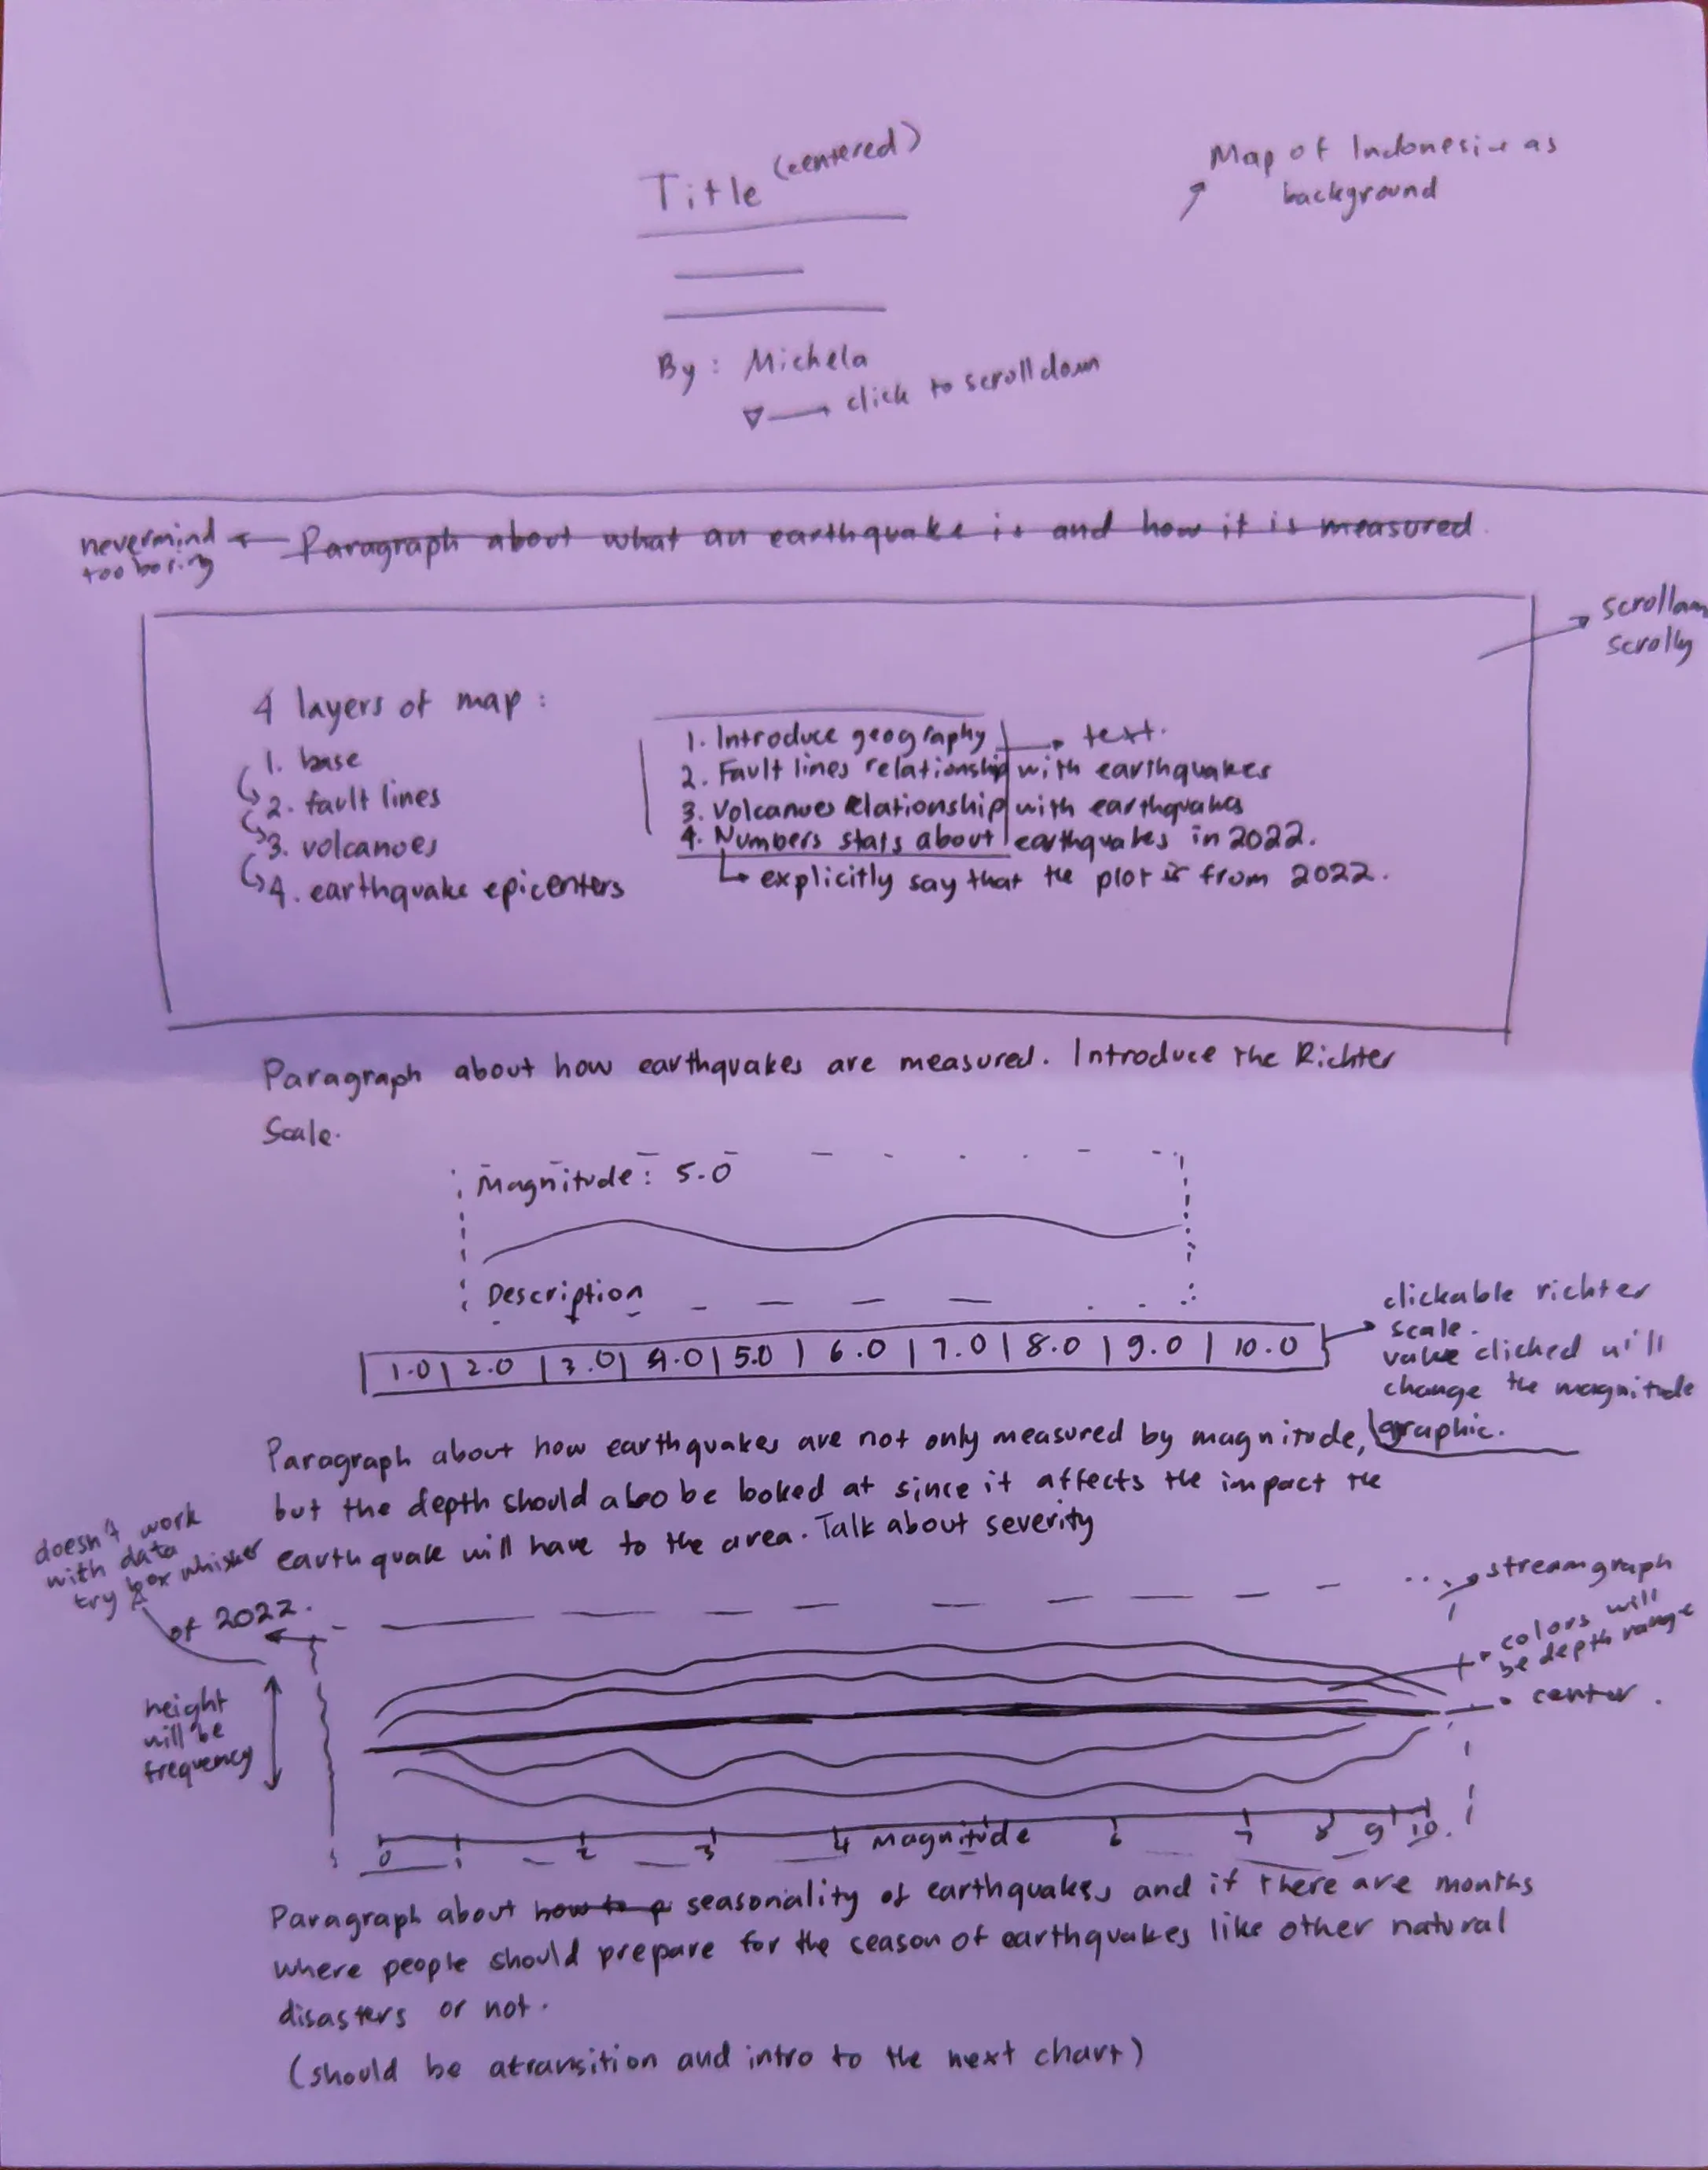 Title (centered)
Map of Indonesia as
background
By: Michela
▽→ click to scroll down
nevermind
too boring
Paragraph about what an earthquake is and how it is measured
scrollam
scrolly
4 layers of map:
1. base
2. fault lines
3. volcanoes
4. earthquake epicenters
1. Introduce geography → text.
2. Fault lines relationship with earthquakes
3. Volcanoes relationship with earthquakes
4. Numbers stats about earthquakes in 2022.
↳ explicitly say that the plot is from 2022.
Paragraph about how earthquakes are measured. Introduce the Richter
Scale.
Magnitude: 5.0
Description
1.0 | 2.0 | 3.0 | 4.0 | 5.0 | 6.0 | 7.0 | 8.0 | 9.0 | 10.0
clickable richter
scale.
value clicked will
change the magnitude
graphic.
Paragraph about how earthquakes are not only measured by magnitude,
but the depth should also be looked at since it affects the impact the
earthquake will have to the area. Talk about severity
of 2022.
doesn't work
with data
try box whisker
streamgraph
colors will
be depth range
center.
height
will be
frequency
0 1 2 3 4 Magnitude 6 7 8 9 10.
Paragraph about how to p seasonality of earthquakes and if there are months
where people should prepare for the season of earthquakes like other natural
disasters or not.
(should be a transition and intro to the next chart)